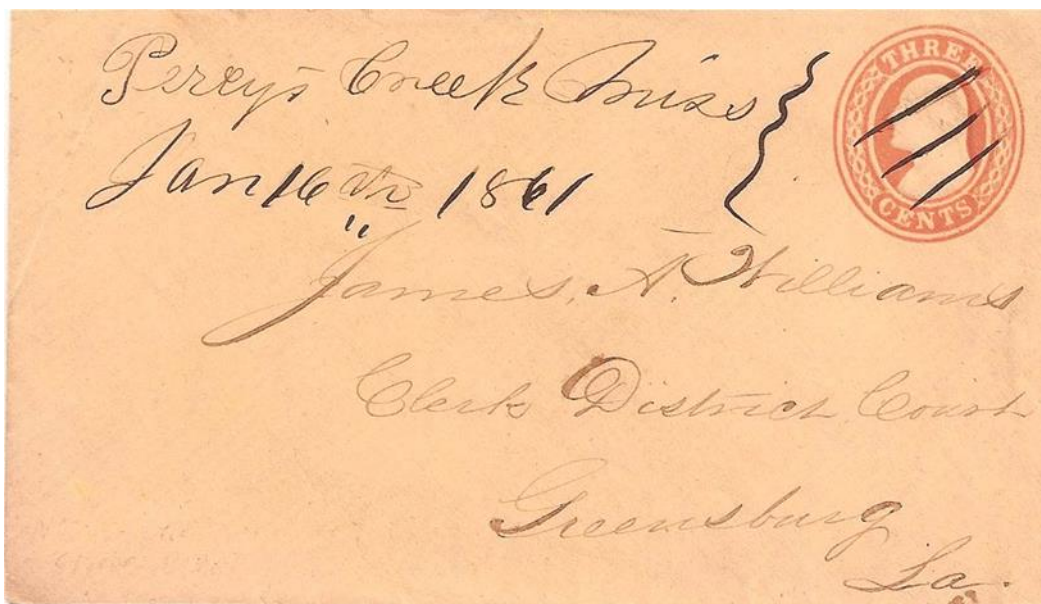 Perrys Creek Miss
Jan 16th 1861
THREE
CENTS
James. A. Williams
Clerk District Court
Greensburg
La.